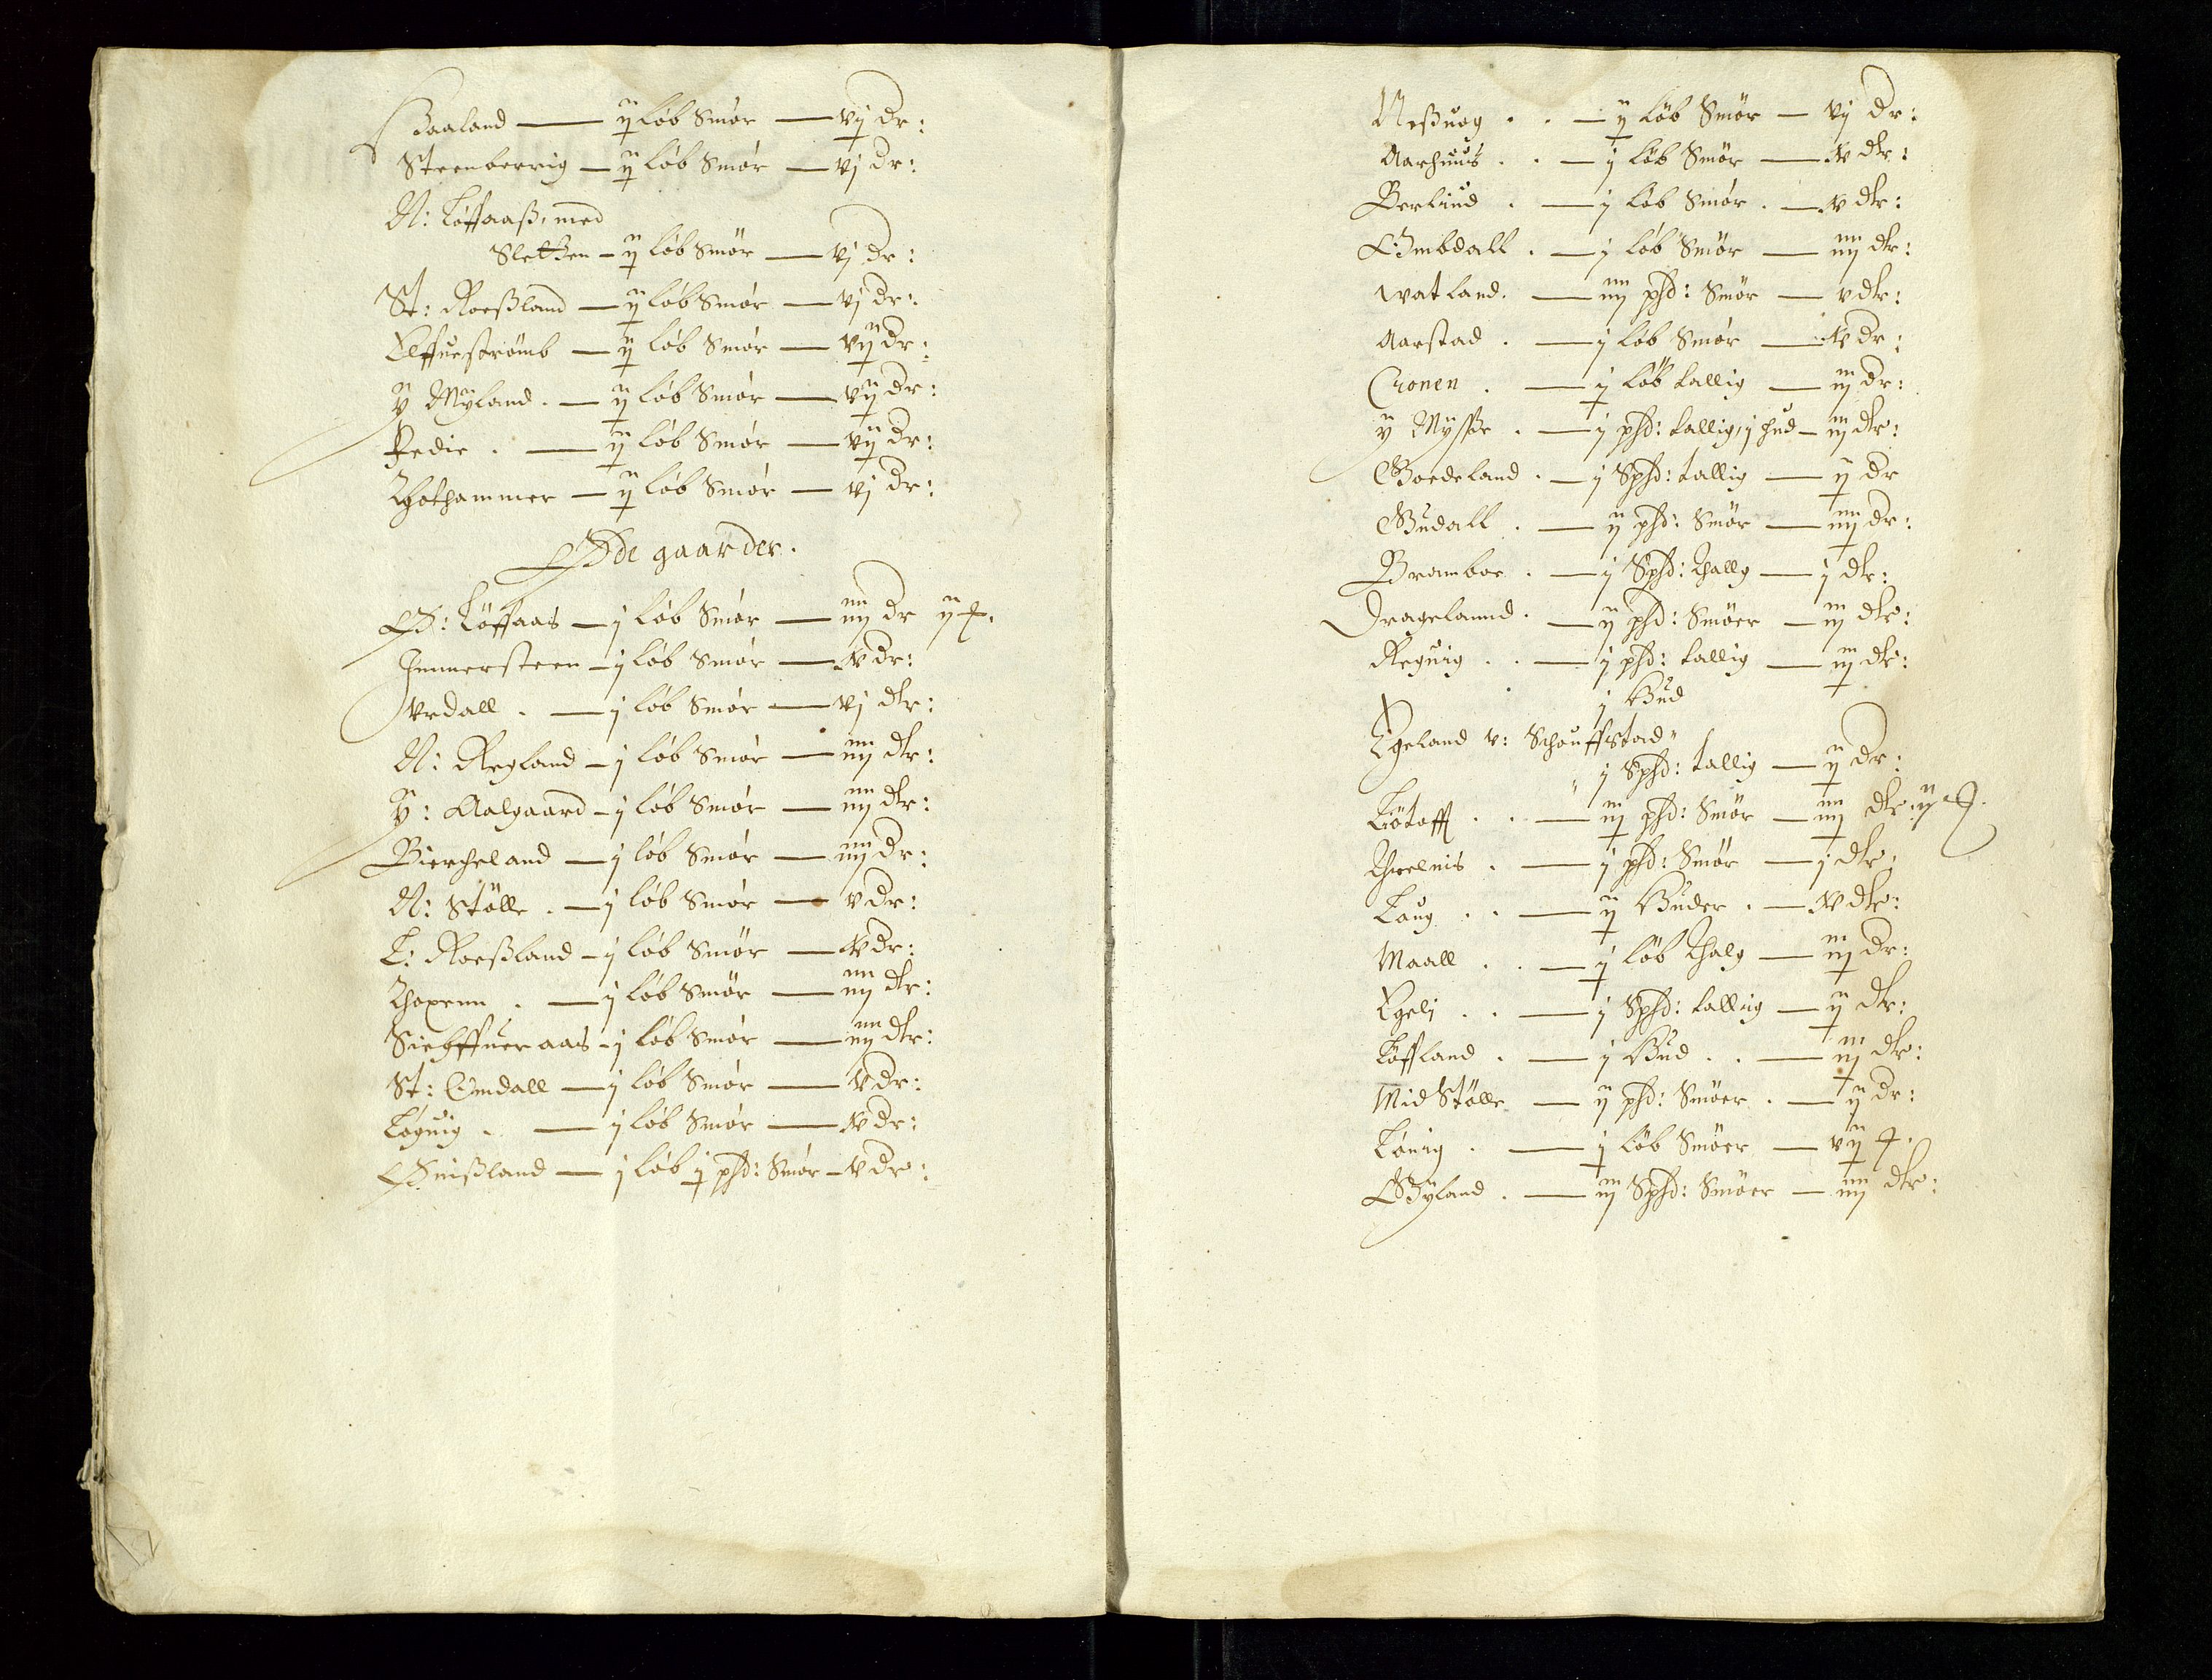 Haaland — ij löb Smör — vij dr:
Steenberrig — ij löb Smör — vj dr:
N: Löffaaß, med
Sletthen — ij löb Smör — vj dr:
St: Roeßland — ij löb Smör — vj dr:
Elffueströmb — ij löb Smör — vij dr:
Y Myland . — ij löb Smör — vij dr:
Fedie . — ij löb Smör — vij dr:
Thothammer — ij löb Smör — vj dr:
Öde gaarder.
Ö: Löffaas — j löb Smör — iiij dr ij
Immersteen — j löb Smör — iv dr:
Vrdall . — j löb Smör — vj dlr:
N: Regland — j löb Smör — iiij dlr:
Y: Aalgaard — j löb Smör — iiij dlr:
Biercheland — j löb Smör — iiij dr:
N: Stölle . — j löb Smör — v dr:
L: Roeßland — j löb Smör — iv dr:
Thoxenn . — j löb Smör — iiij dlr:
Siegffueraas — j löb Smör — iiij dlr:
St: Omdall — j löb Smör — v dr:
Løguig . — j löb Smör — iv dr:
Guißland — j löb j phd: Smör — v dr:
Neßuog . . — ij löb Smör — vj dr:
Aarhuus . . — j löb Smör — iv dlr:
Berliud . — j löb Smör . — iv dlr:
Ombdall . — j löb Smör — iiij dlr:
Watland . — iiij phd: Smör — v dlr:
Aarstad . — j löb Smör — iv dr:
Cronen . — j löb tallig — iij dr:
Y Mysse . — j phd: tallig, j hud — iij dlr:
Goedeland . — j Sphd: tallig — ij dr
Gudall . — ij phd: Smör — iiij dr:
Bramboe . — j Sphd: Thallg — j dlr:
Dragelannd . — ij phd: Smöer — iij dlr:
Reguig . . — j phd: tallig — iij dlr:
j Hud
Egeland v: Schouffstad"
" j Sphd: tallig — ij dr:
Lötoff . . — iij phd: Smör — iiij dlr: ij
Threlnis . — j phd: Smör — j dlr:
Laug . . — ij Huder . — iv dlr:
Maall . . — j löb Thalg — iij dr:
Egeli . . — j Sphd: tallig — ij dlr:
Löffland . — j Hud . . — iij dlr:
Mid Stölle — ij phd: Smöer . — ij dr:
Lönig . — j löb Smöer — vij
Byland . — iij Sphd: Smöer — iiij dlr: